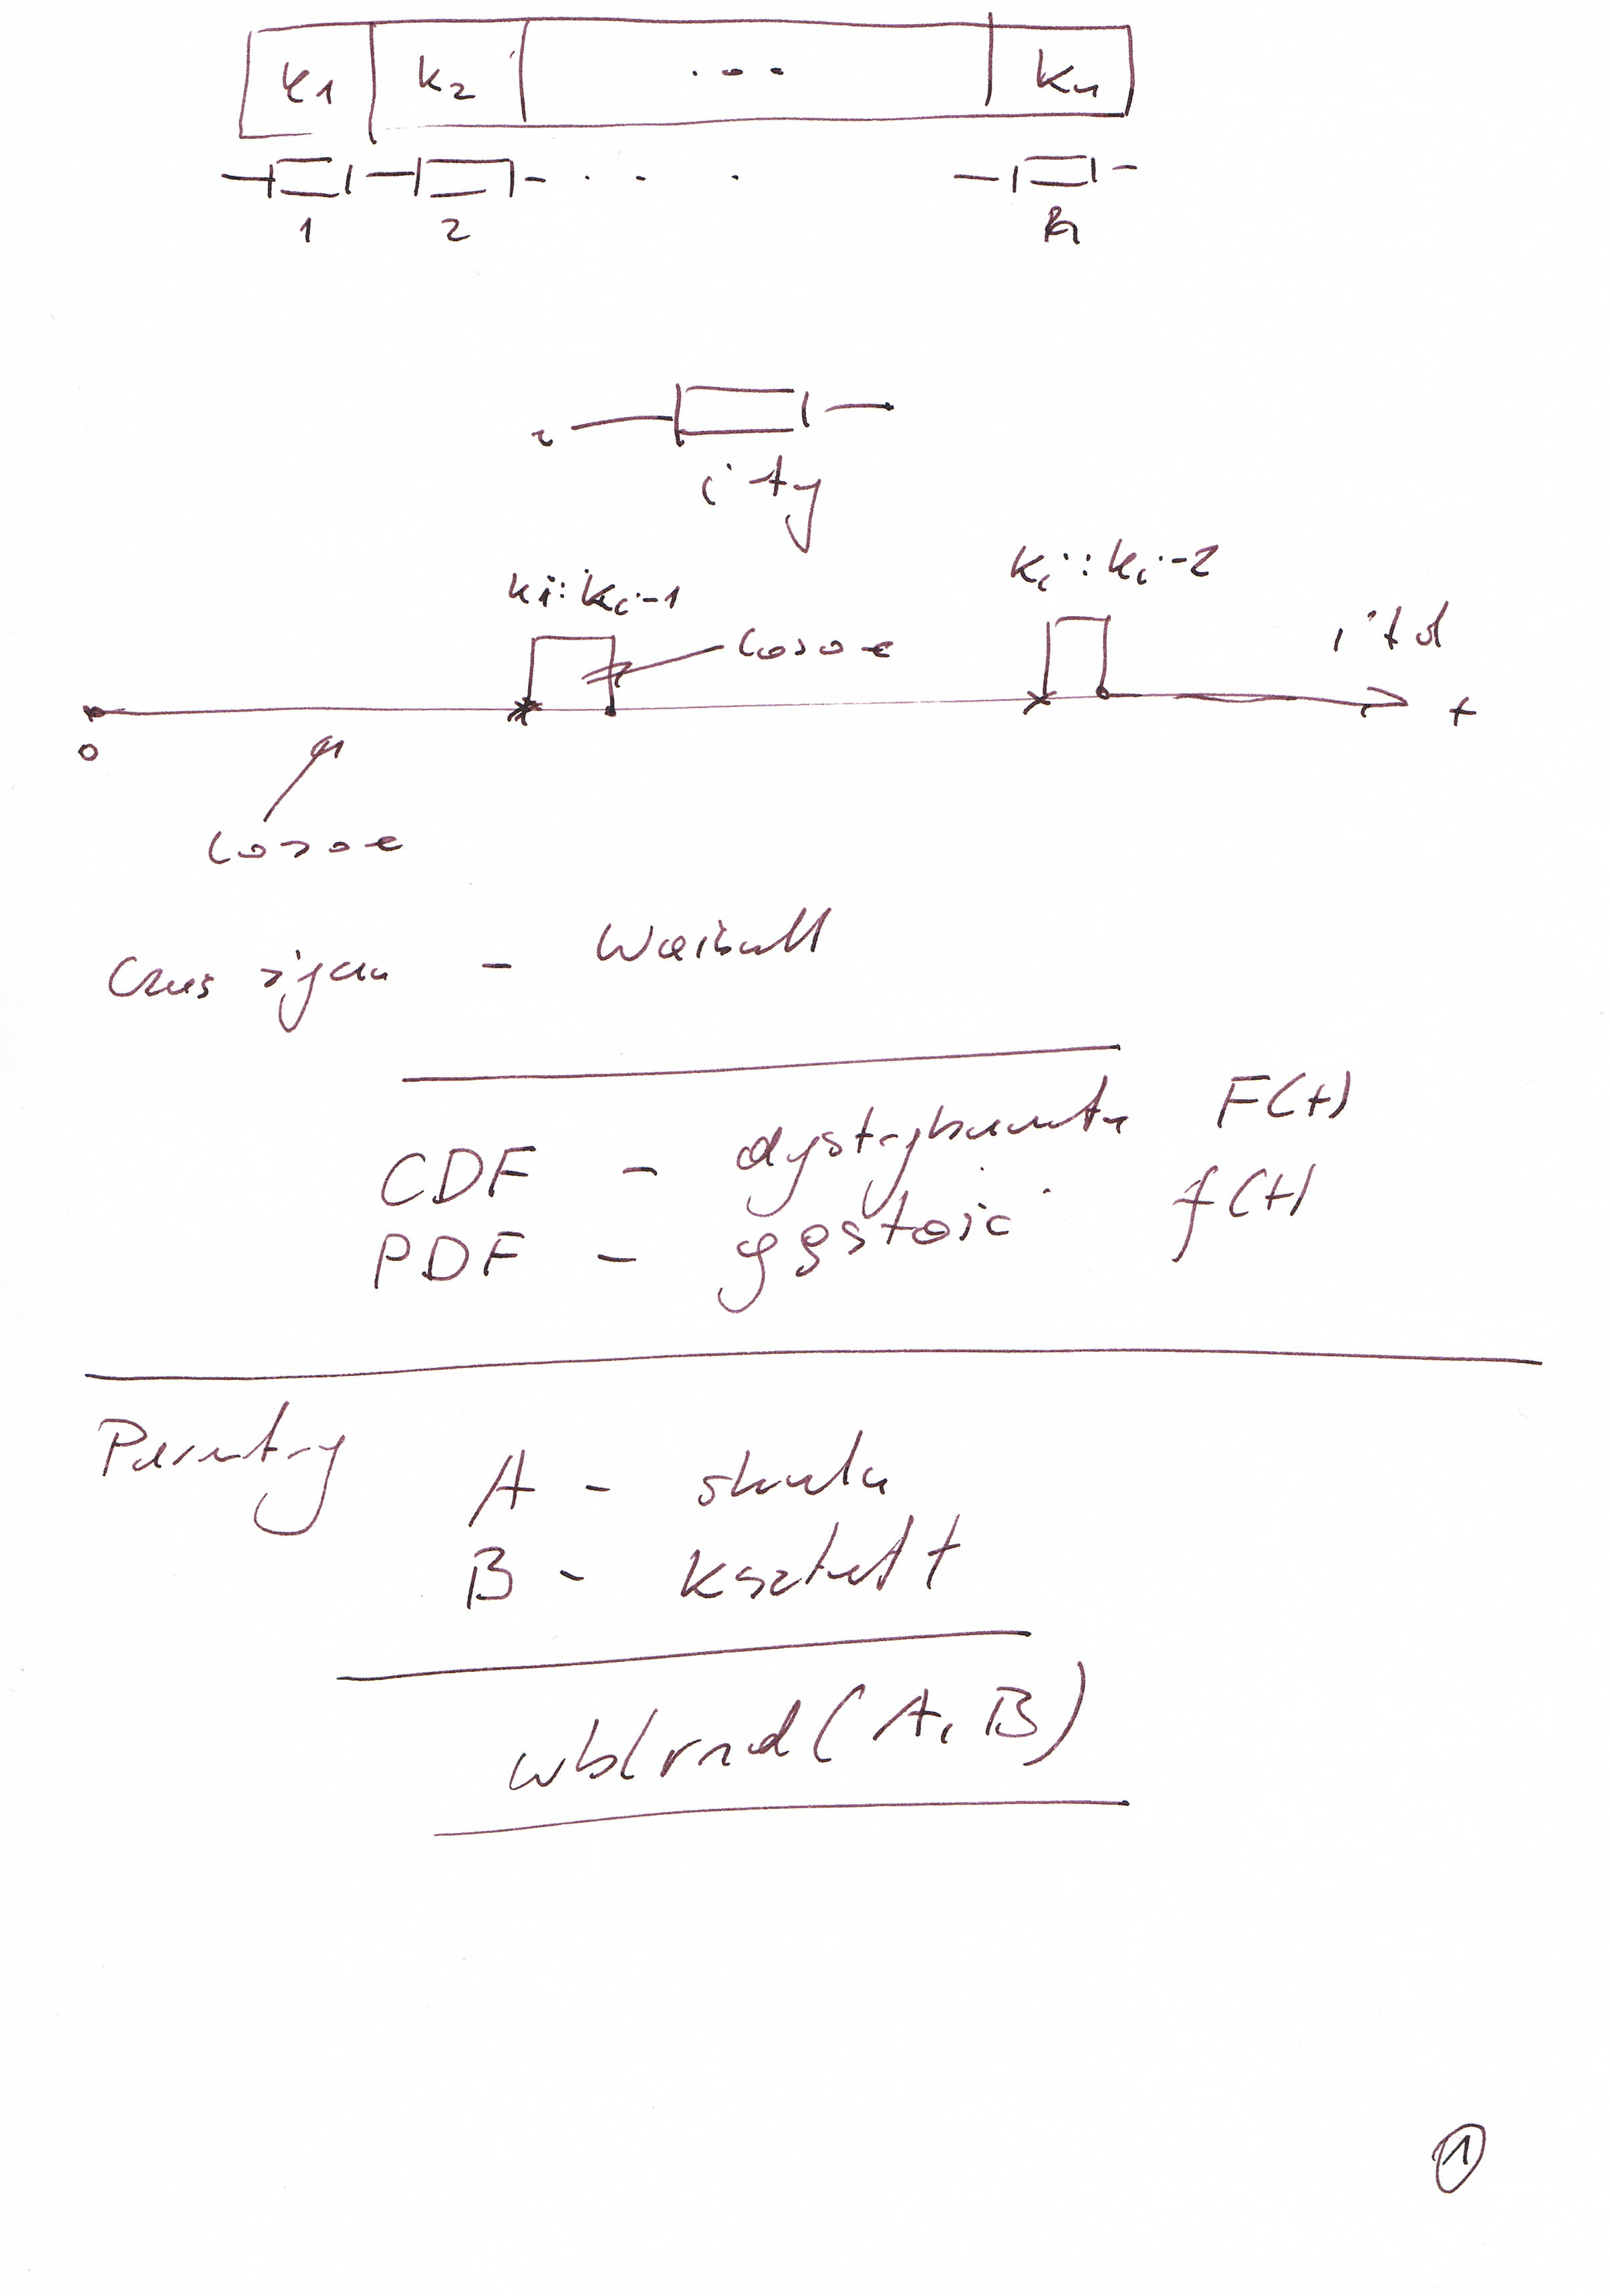 k1 k2 ... kn
1 2 n
i-ty
ki: ki-1 ki: ki-2
losowe itd
0 t
losowe
Czas życia - Weibull
CDF - dystrybuanta F(t)
PDF - gęstość f(t)
Parametry A - skala
B - kształt
wblrnd(A, B)
1